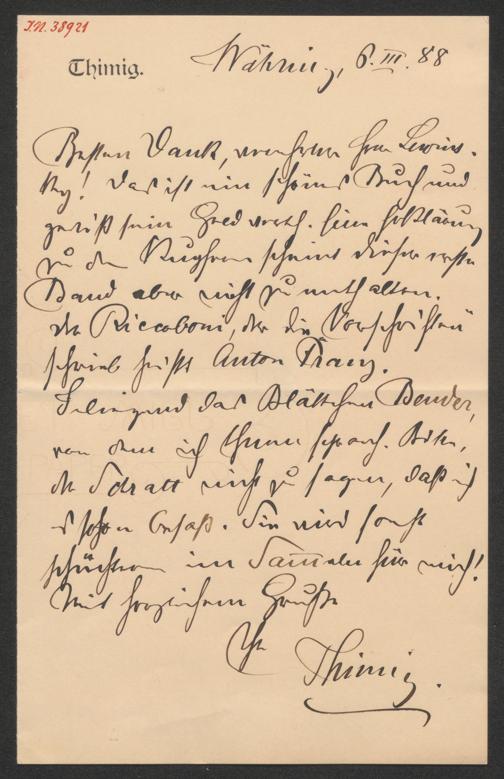 I.N. 38921
Thimig.
Währing, 6. III. 88
Besten Dank, verehrter Herr Lewins-
ky! Das ist ein schönes Buch und
gewiß sein Geld werth. Eine Erklärung
zu den Kupfern scheint dieser erste
Band aber nicht zu enthalten.
Der Riccoboni, der die Vorschriften
schrieb heißt Anton Franz.
Inliegend das Blättchen Bender,
von dem ich Ihnen sprach. Bitte,
der Schratt nicht zu sagen, daß ich
es schon besaß. Sie wird sonst
schüchtern im Sammeln für mich!
Mit herzlichem Gruße
Ihr
Thimig.